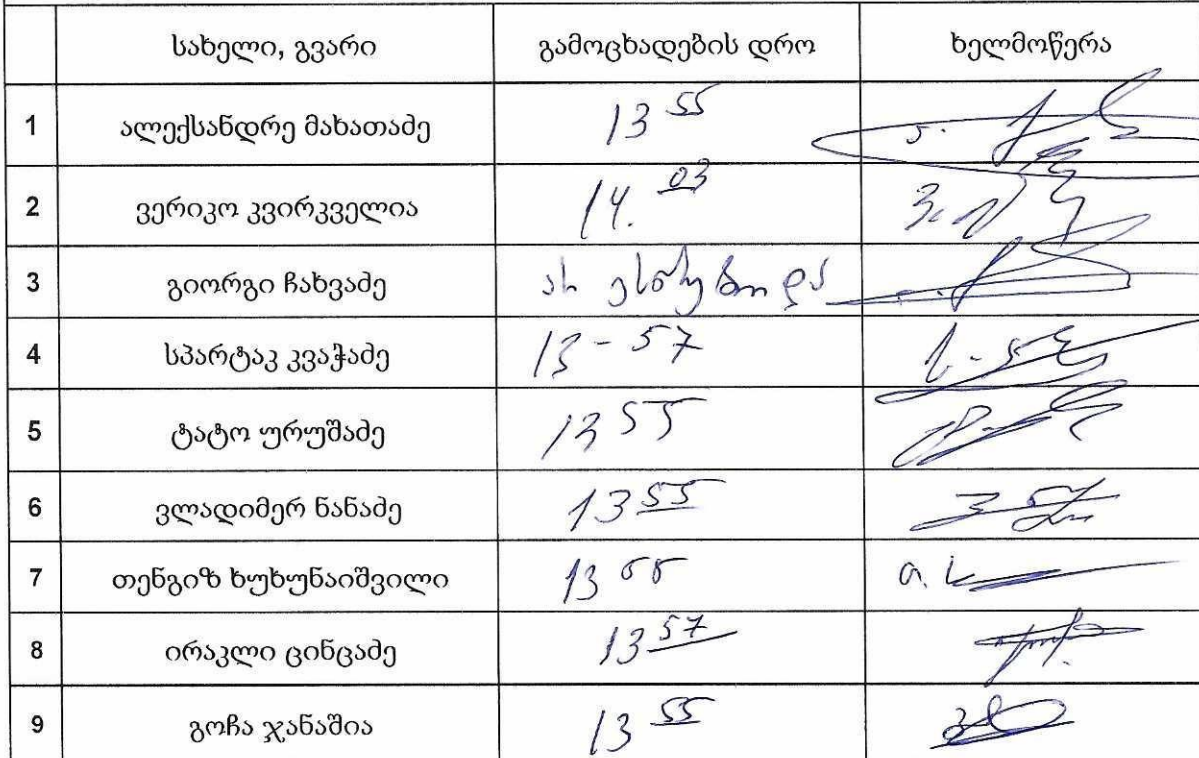 სახელი, გვარი გამოცხადების დრო ხელმოწერა
1 ალექსანდრე მახათაძე 13 55
2 ვერიკო კვირკველია 14. 03
3 გიორგი ჩახვაძე არ ესწრებოდა
4 სპარტაკ კვაჭაძე 13 - 57
5 ტატო ურუშაძე 13 55
6 ვლადიმერ ნანაძე 13 55
7 თენგიზ ხუხუნაიშვილი 13
8 ირაკლი ცინცაძე 13 57
9 გოჩა ჯანაშია 13 55